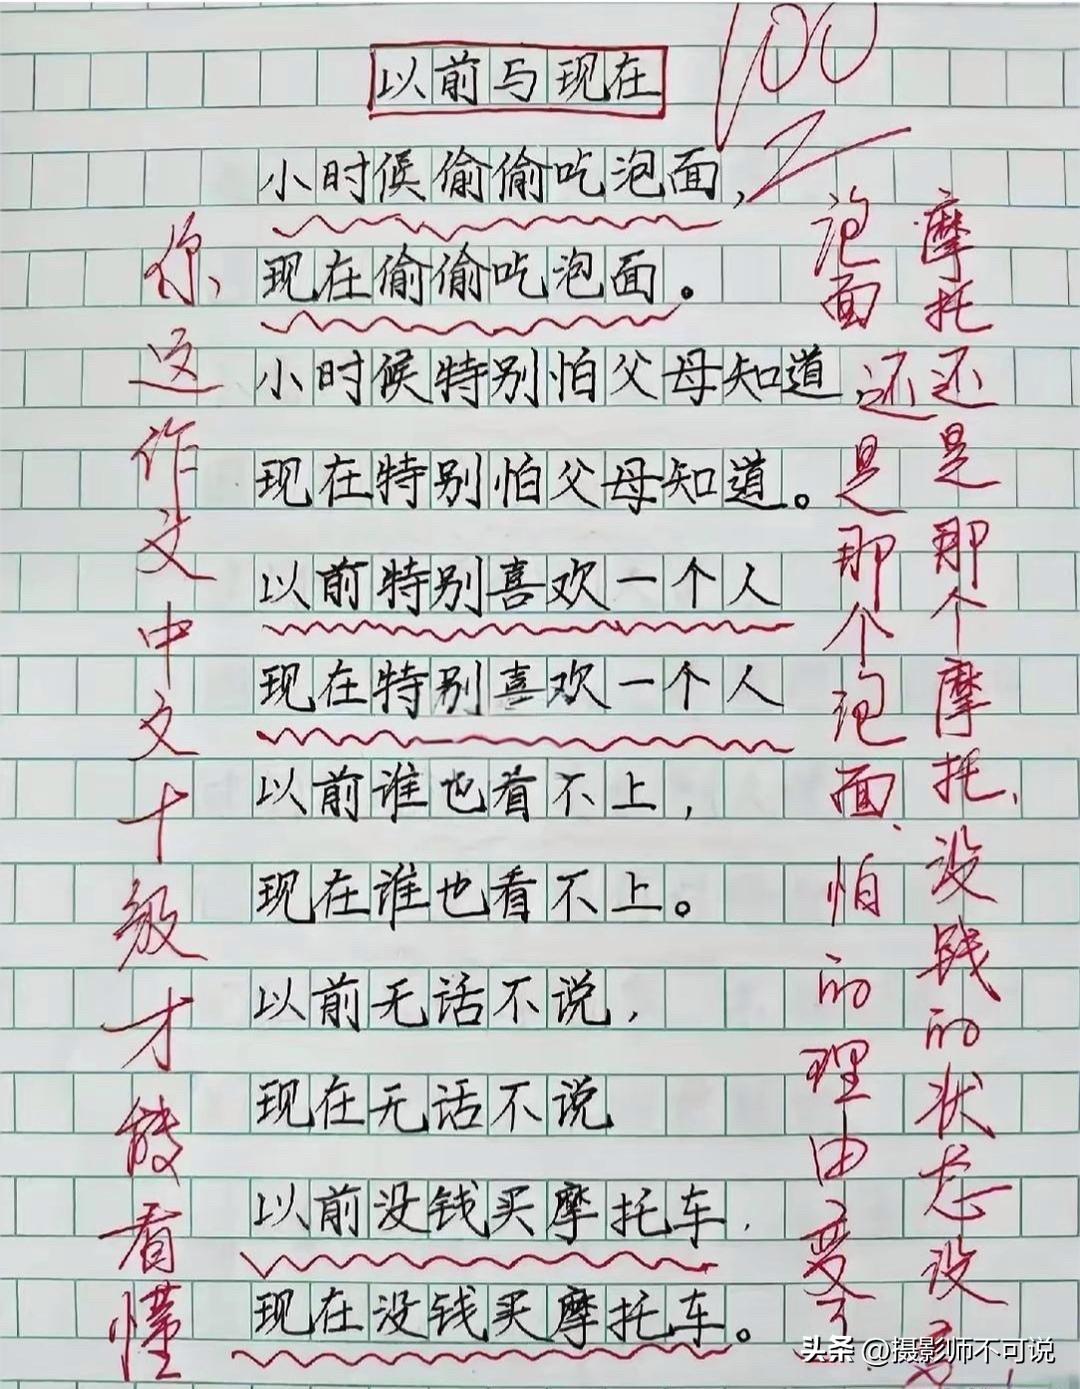 以前与现在
100
小时候偷偷吃泡面，
现在偷偷吃泡面。
小时候特别怕父母知道，
现在特别怕父母知道。
以前特别喜欢一个人
现在特别喜欢一个人
以前谁也看不上，
现在谁也看不上。
以前无话不说，
现在无话不说
以前没钱买摩托车，
现在没钱买摩托车。
你这作文中文十级才能看懂
泡面还是那个泡面、怕的理由变了
摩托还是那个摩托、没钱的状态没
头条 @摄影师不可说